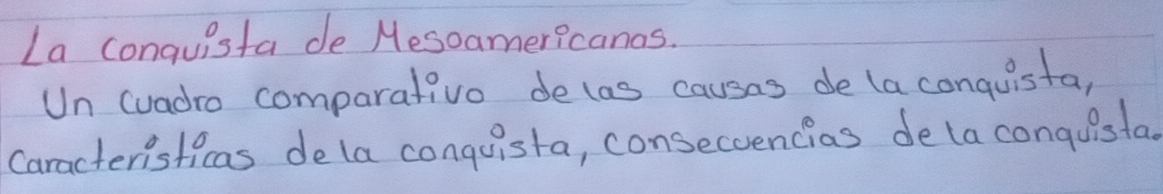 La conquista de Mesoamericanos.
Un cuadro comparativo de las causas de la conquista,
características de la conquista, consecuencias de la conquista.